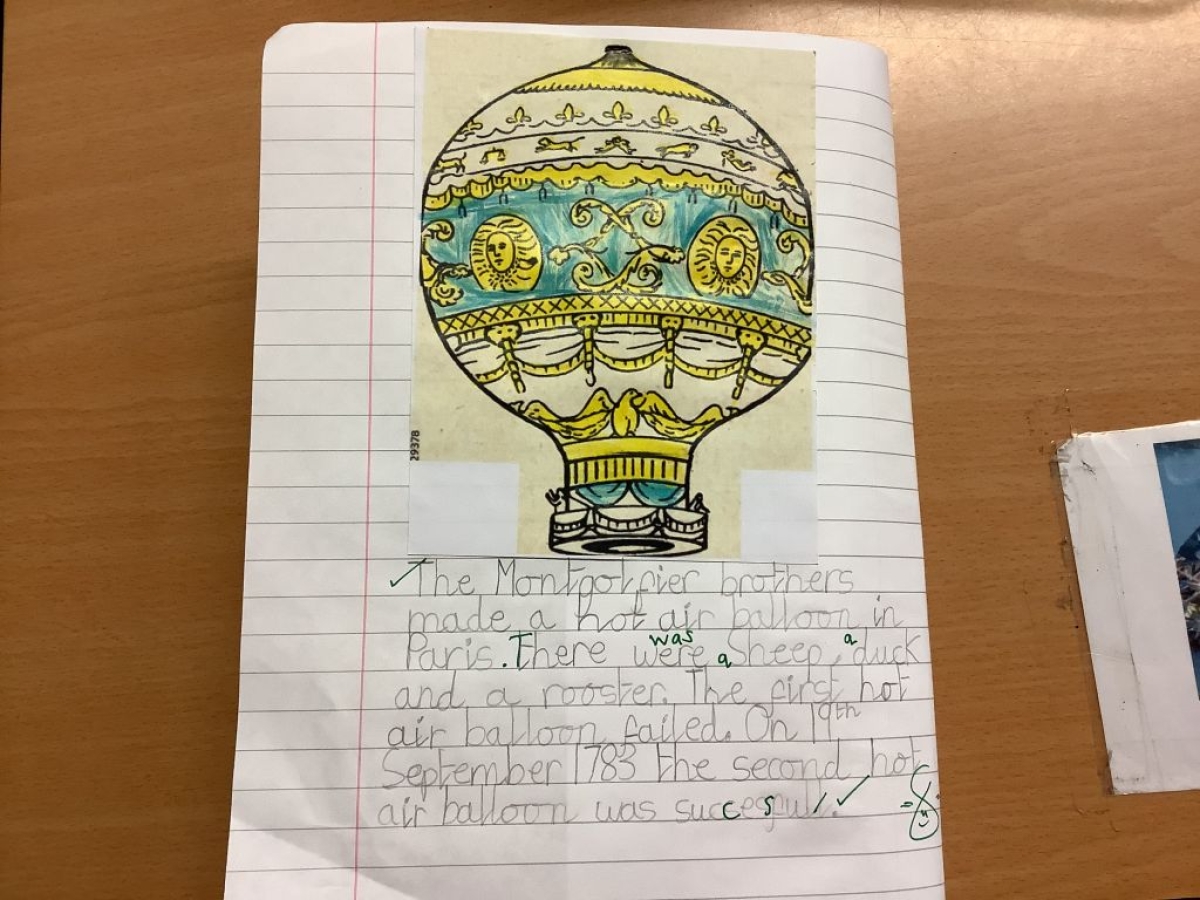 29378
The Montgolfier brothers
made a hot air balloon in
was a
Paris. There were a sheep, duck
and a rooster. The first hot
air balloon failed. On 19th
September 1783 the second hot
air balloon was successfull.